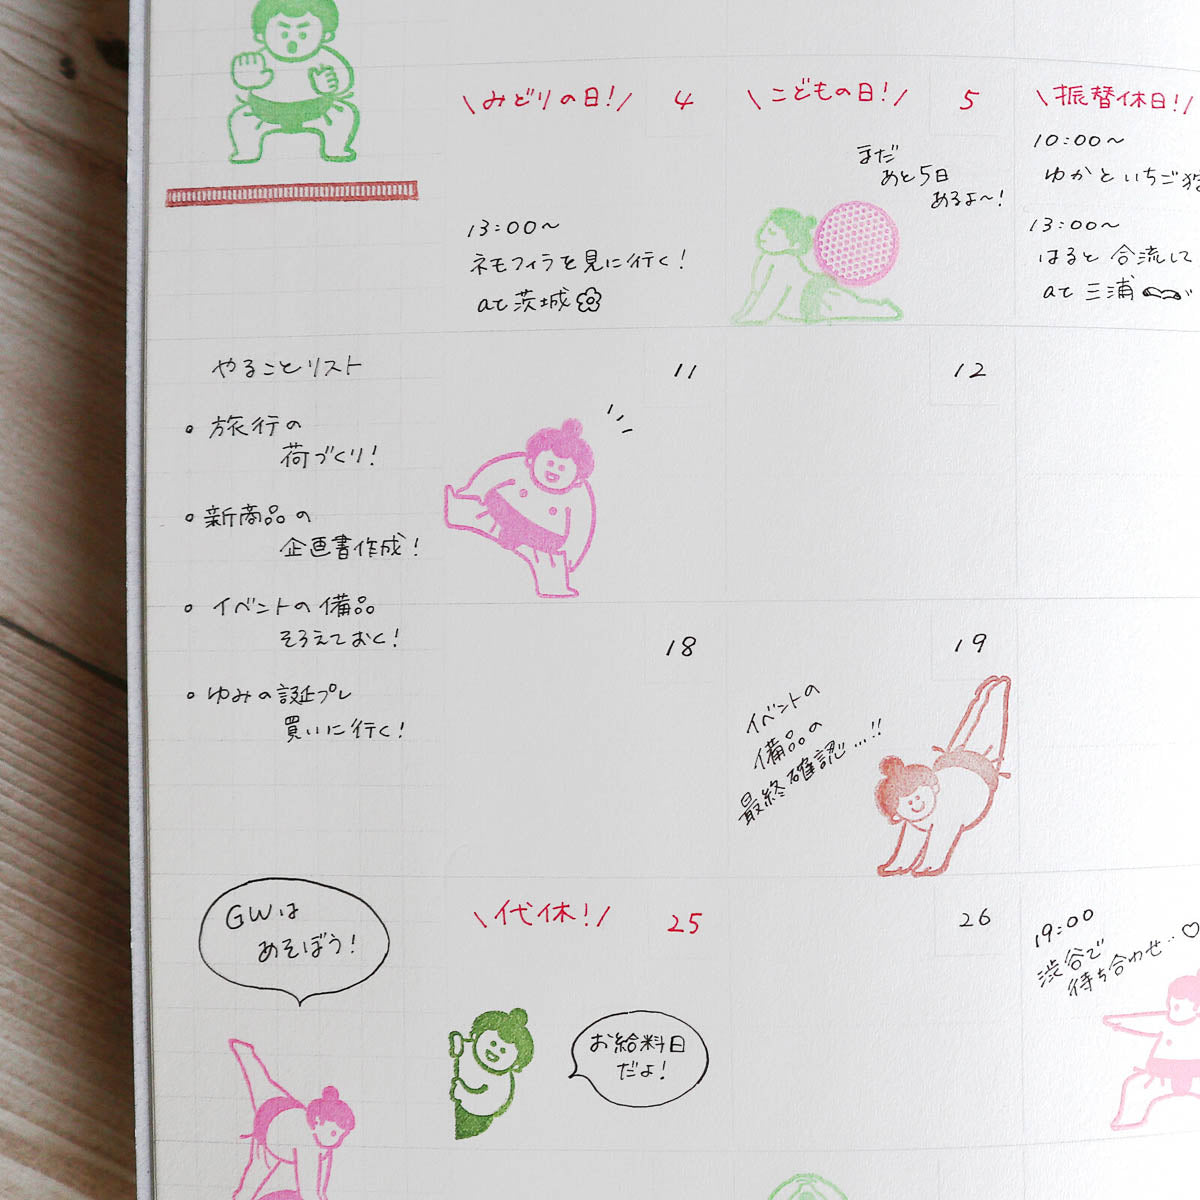 \みどりの日!/ 4
\こどもの日!/ 5
\振替休日!/
まだ
あと5日
あるよ〜!
10:00〜
ゆかといちご狩
13:00〜
ネモフィラを見に行く!
at 茨城
13:00〜
はると合流して
at 三浦
やることリスト
11
12
• 旅行の
荷づくり!
• 新商品の
企画書作成!
• イベントの備品
そろえておく!
• ゆみの誕プレ
買いに行く!
18
19
イベントの
備品の
最終確認...!!
GWは
あそぼう!
\代休!/ 25
お給料日
だよ!
26
19:00
渋谷で
待ち合わせ..♡